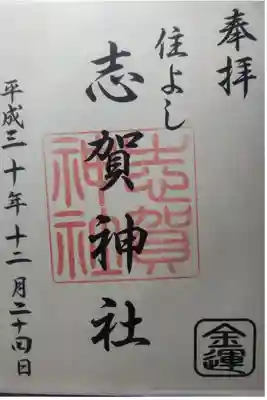 奉拝
住よし
志賀神社
平成三十年十二月二十四日
志賀
神社
金運